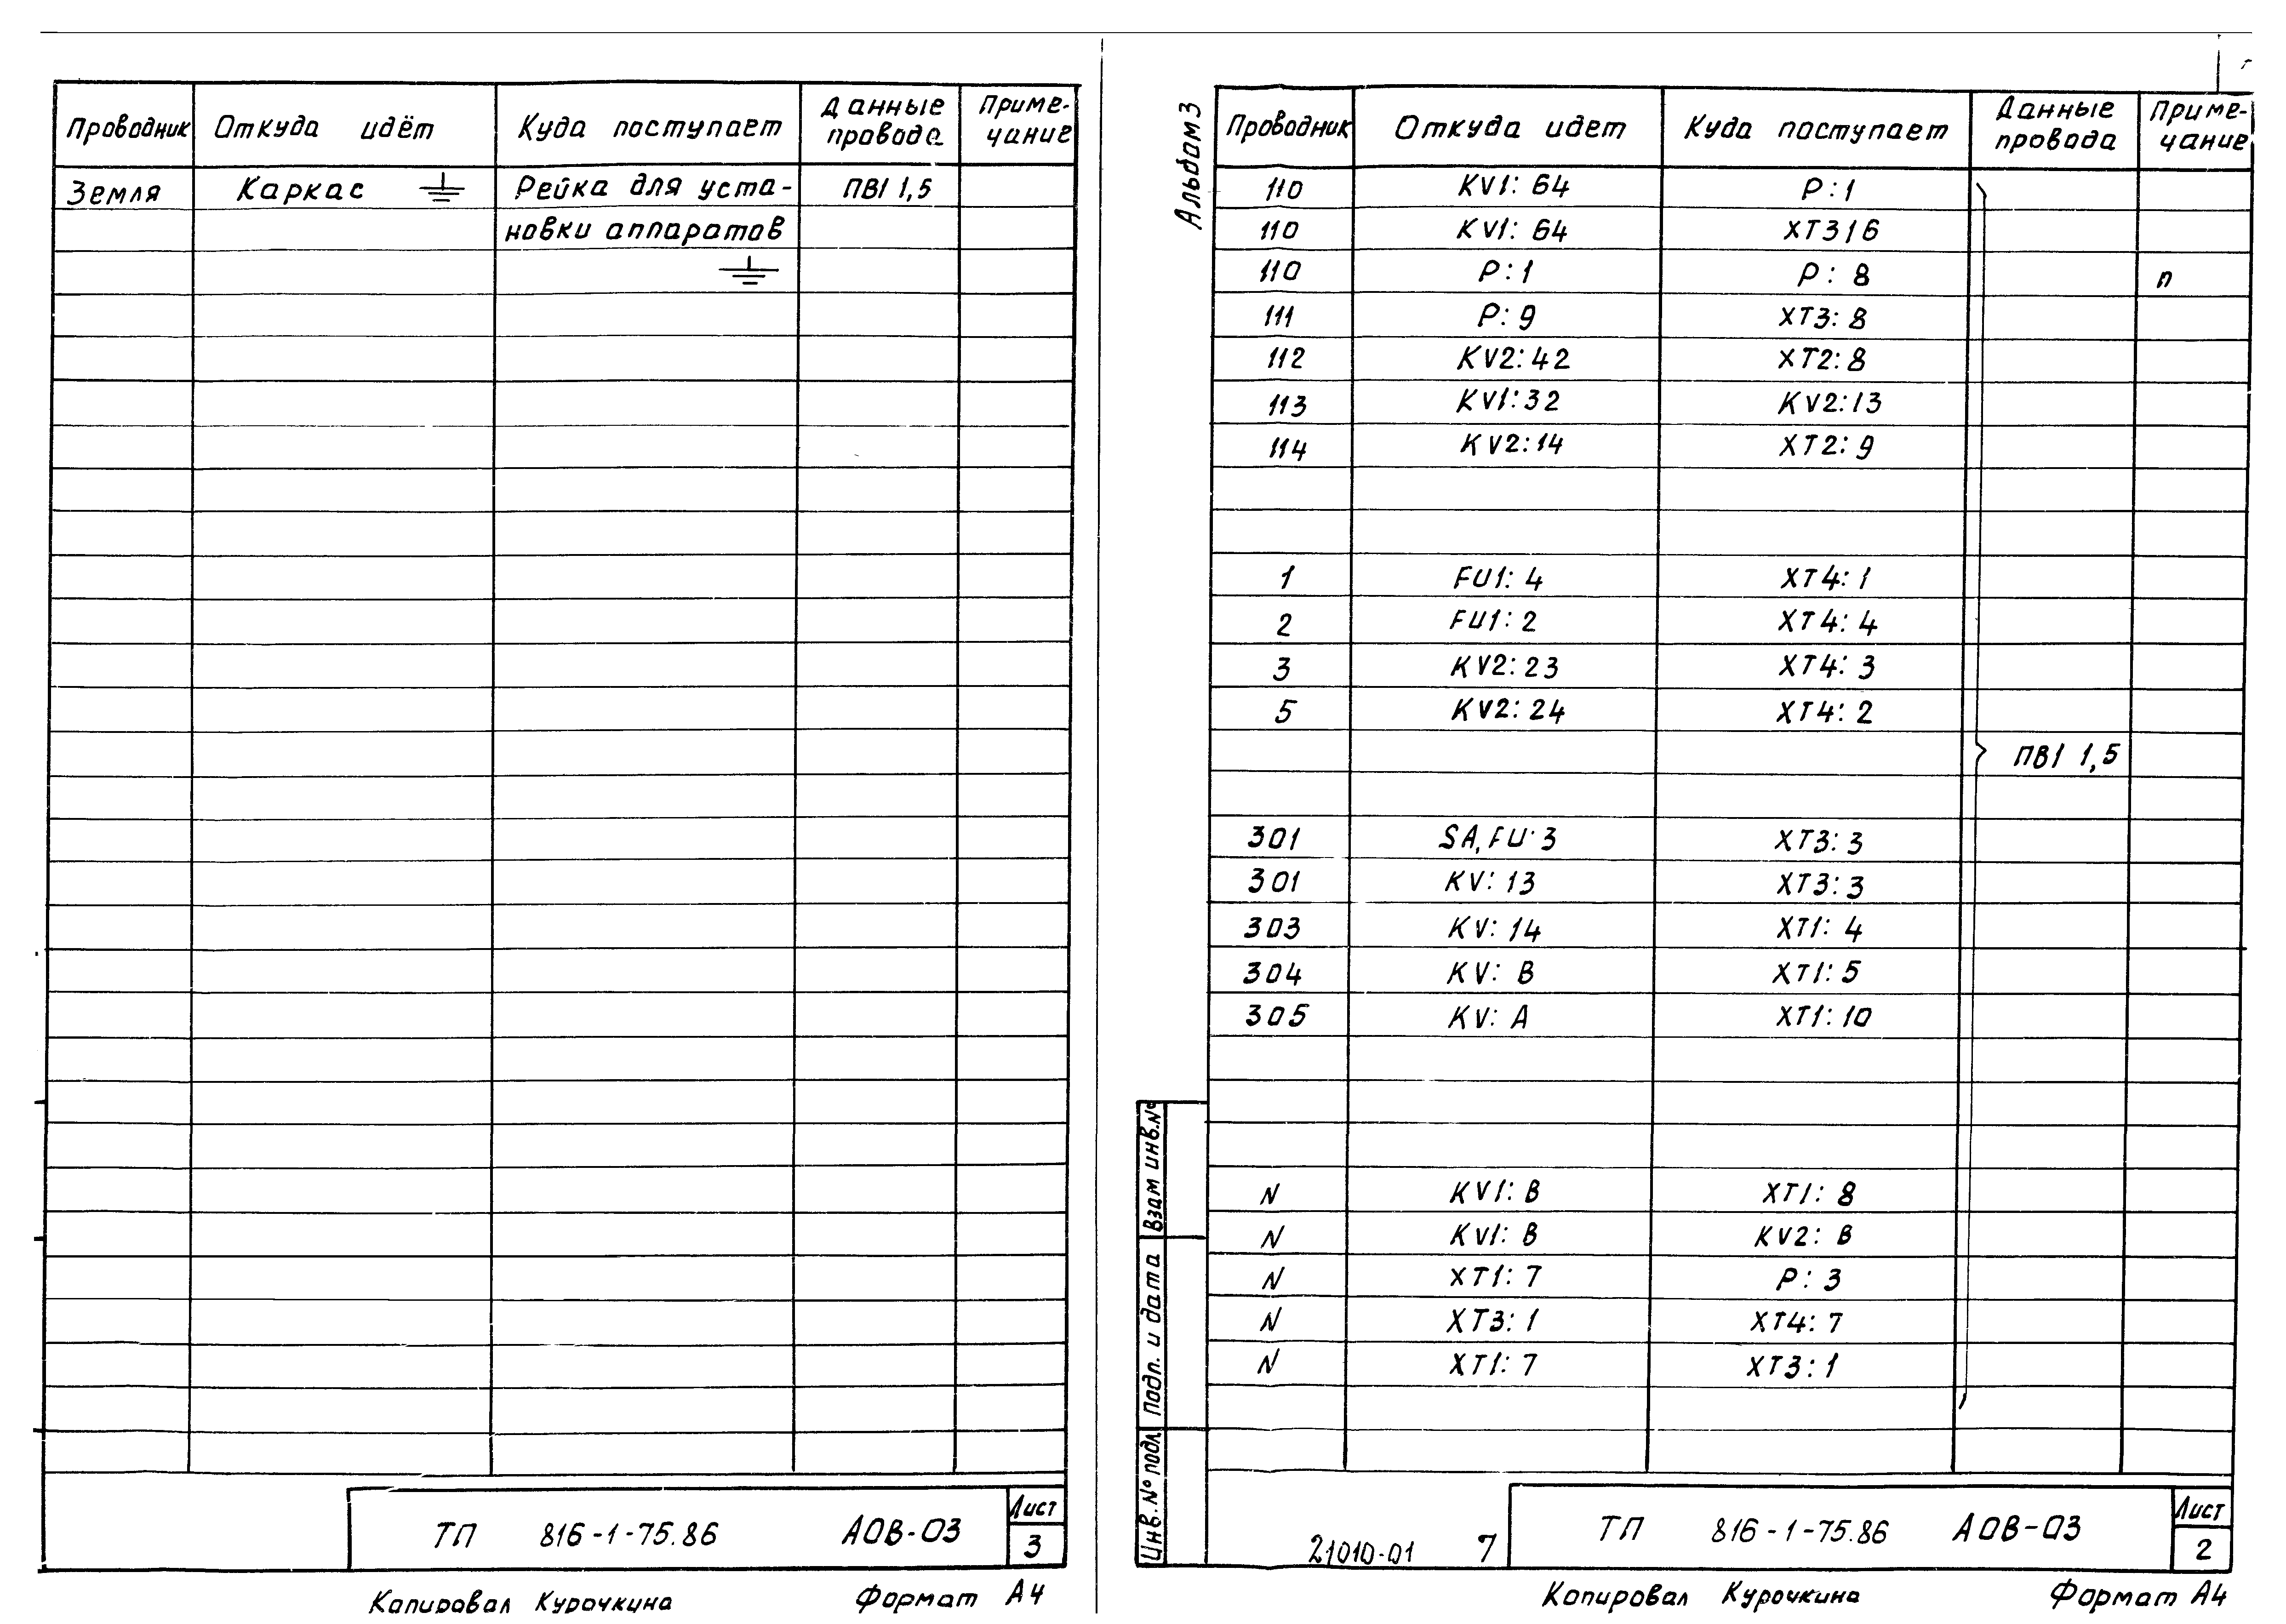 Проводник Откуда идёт Куда поступает Данные провода Приме-чание
Земля Каркас Рейка для уста- ПВ1 1,5
новки аппаратов
ТП 816-1-75.86 АОВ-03 Лист 3
Копировал Курочкина Формат А4
Альбом 3
Проводник Откуда идет Куда поступает Данные провода Приме-чание
110 KV1: 64 P: 1
110 KV1: 64 XT3 | 6
110 P: 1 P: 8 п
111 P: 9 XT3: 8
112 KV2: 42 XT2: 8
113 KV1: 32 KV2: 13
114 KV2: 14 XT2: 9
1 FU1: 4 XT4: 1
2 FU1: 2 XT4: 4
3 KV2: 23 XT4: 3
5 KV2: 24 XT4: 2
ПВ1 1,5
301 SA, FU: 3 XT3: 3
301 KV: 13 XT3: 3
303 KV: 14 XT1: 4
304 KV: B XT1: 5
305 KV: A XT1: 10
N KV1: B XT1: 8
N KV1: B KV2: B
N XT1: 7 P: 3
N XT3: 1 XT4: 7
N XT1: 7 XT3: 1
Взам инв.№
Подп. и дата
Инв. № подл
21010-01 7 ТП 816-1-75.86 АОВ-03 Лист 2
Копировал Курочкина Формат А4